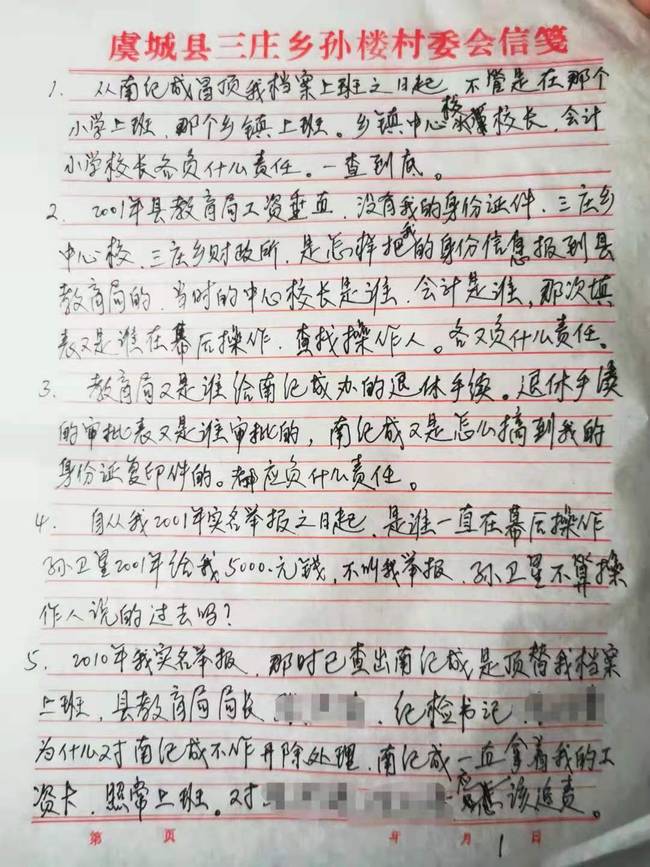 虞城县三庄乡孙楼村委会信笺
1、从南纪成冒顶我档案上班之日起，不管是在那个
小学上班，那个乡镇上班。乡镇中心校校长，会计
小学校长各负什么责任。一查到底。
2、2001年县教育局工资垂直，没有我的身份证件，三庄乡
中心校，三庄乡财政所，是怎样把我的身份信息报到县
教育局的，当时的中心校长是谁，会计是谁，那次填
表又是谁在幕后操作，查找操作人。各又负什么责任。
3、教育局又是谁给南纪成办的退休手续。退休手续
的审批表又是谁审批的，南纪成又是怎么搞到我的
身份证复印件的。都应负什么责任。
4、自从我2001年实名举报之日起，是谁一直在幕后操作
孙卫星2001年给我5000.元钱，不叫我举报，孙卫星不算操
作人说的过去吗？
5、2010年我实名举报，那时已查出南纪成是顶替我档案
上班，县教育局局长 纪检书记
为什么对南纪成不作开除处理，南纪成一直拿着我的工
资卡，照常上班。对 应该追责。
第 页 年 月 1 日